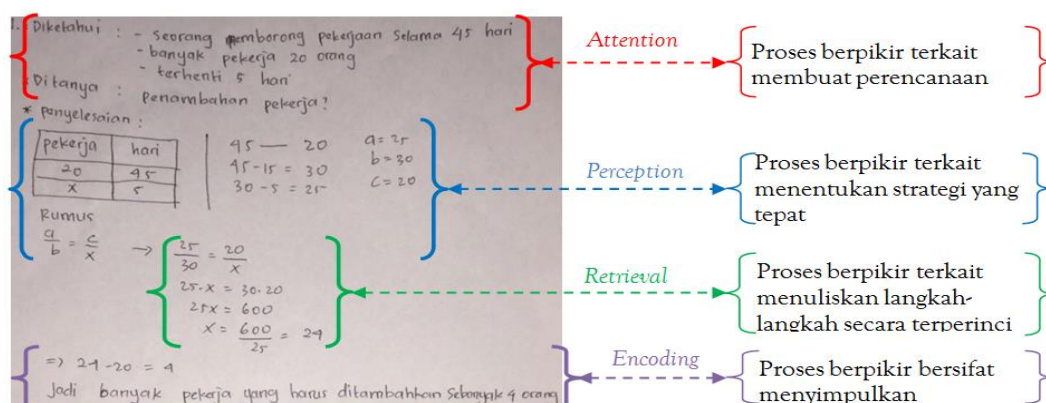 1. Diketahui : - Seorang pemborong pekerjaan selama 45 hari
- banyak pekerja 20 orang
- terhenti 5 hari
* Ditanya : Penambahan pekerja?
* Penyelesaian :
Pekerja hari
20 45
x 5
45 — 20
45 - 15 = 30
30 - 5 = 25
a = 25
b = 30
c = 20
Rumus
a/b = c/x → 25/30 = 20/x
25.x = 30.20
25x = 600
x = 600/25 = 24
=> 24 - 20 = 4
Jadi banyak pekerja yang harus ditambahkan Sebanyak 4 orang
Attention
Proses berpikir terkait
membuat perencanaan
Perception
Proses berpikir terkait
menentukan strategi yang
tepat
Retrieval
Proses berpikir terkait
menuliskan langkah-
langkah secara terperinci
Encoding
Proses berpikir bersifat
menyimpulkan